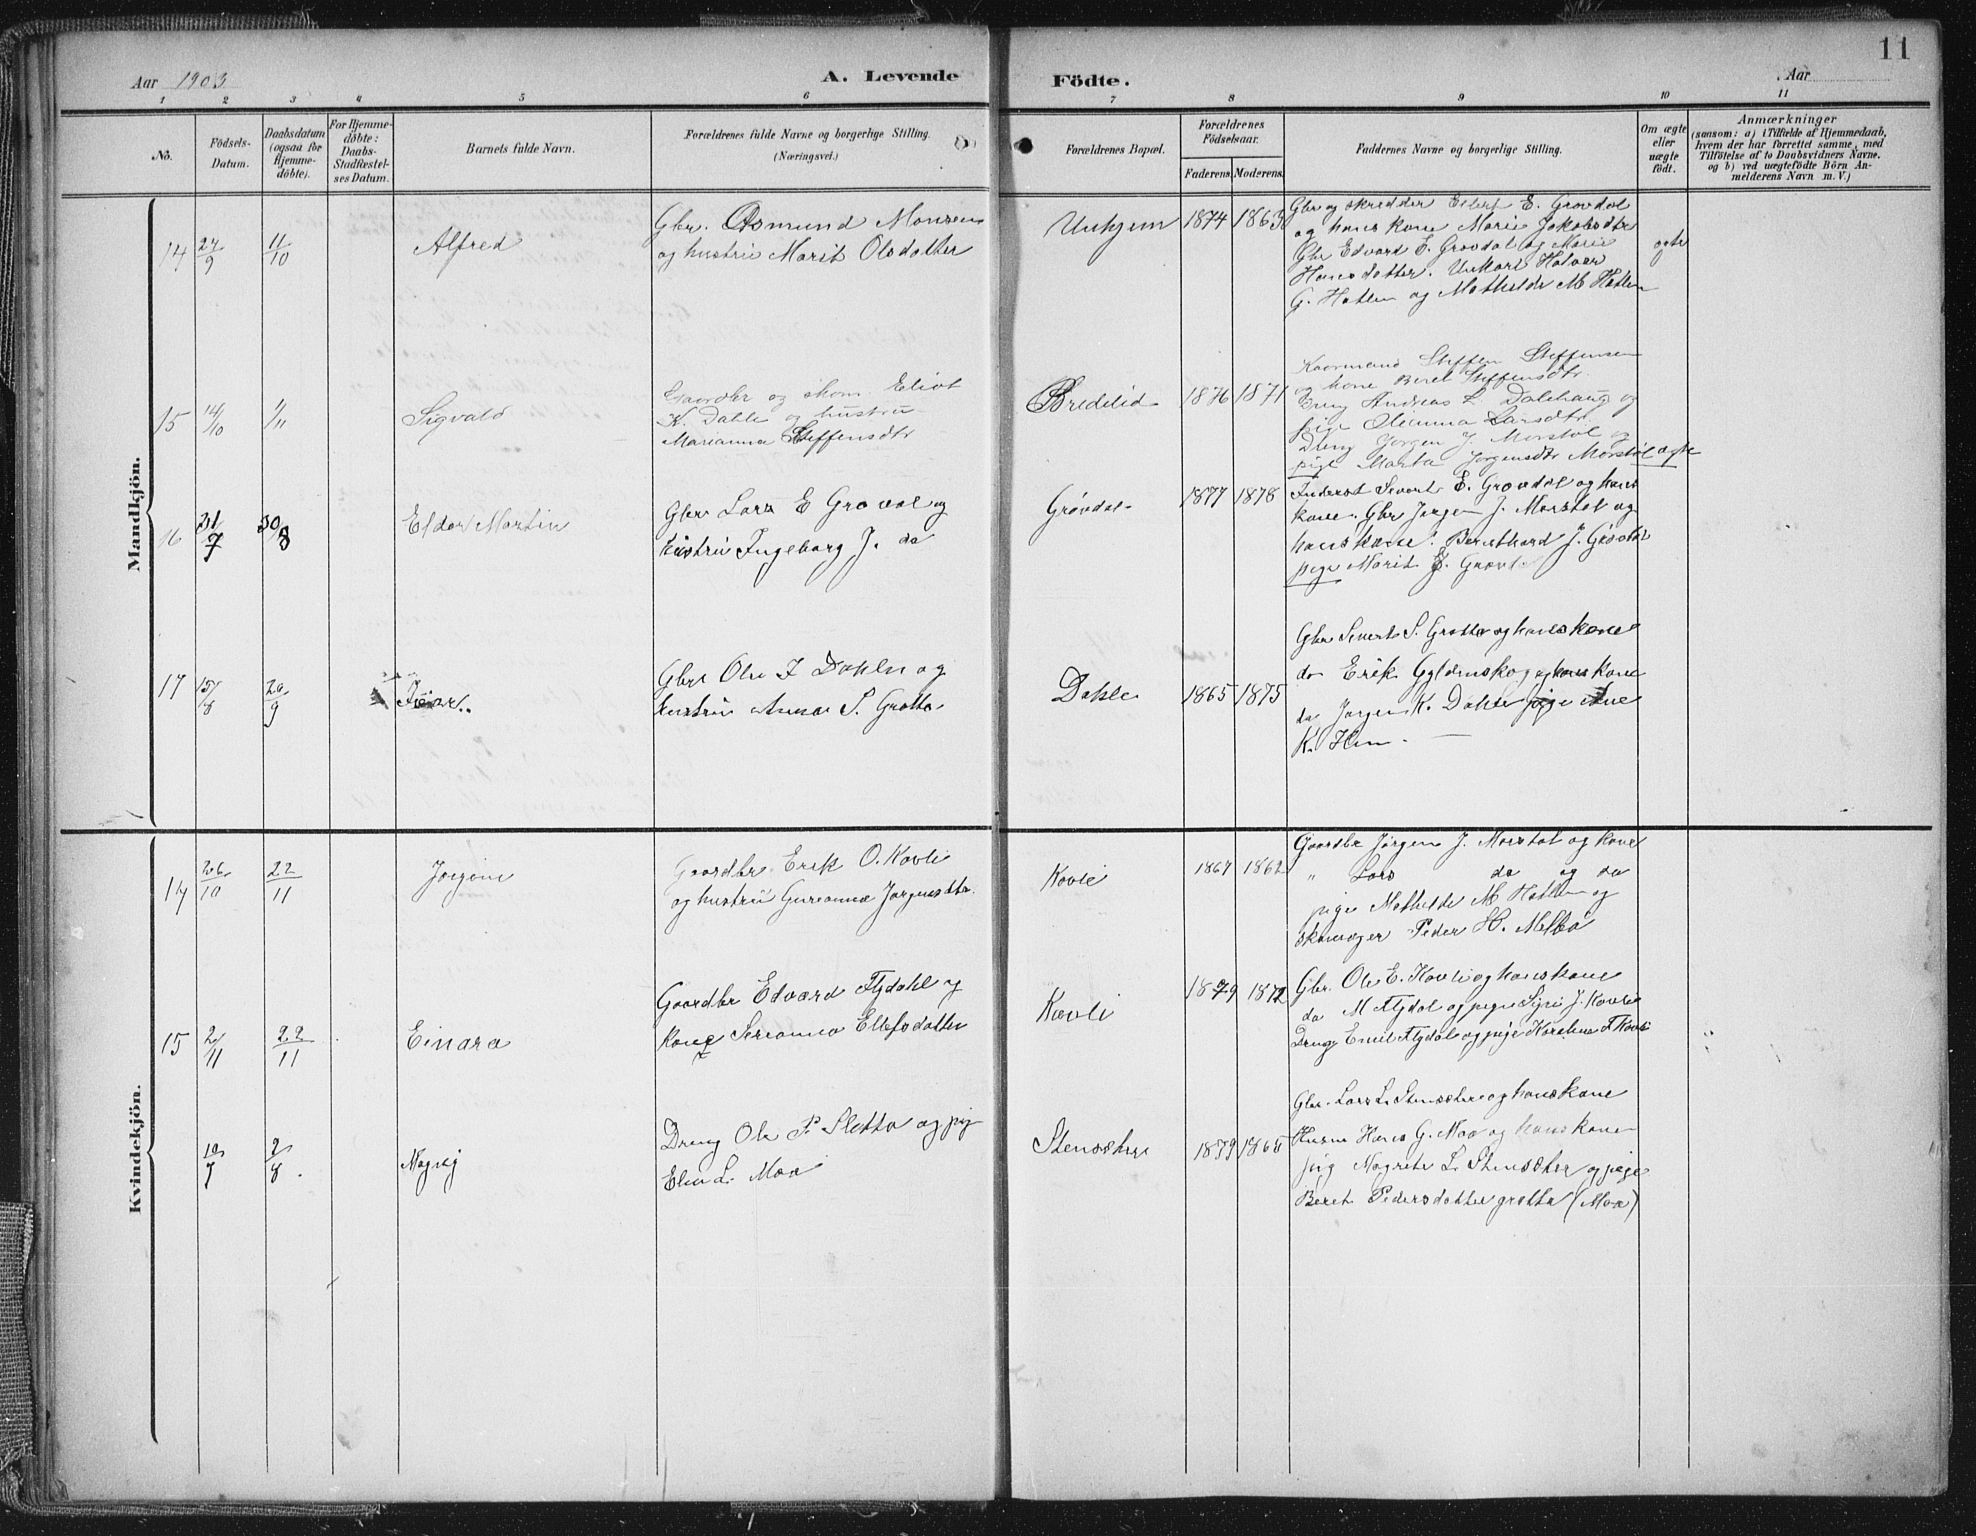 11
Aar 1903 A. Levende Födte. Aar
1 2 3 4 5 6 7 8 9 10 11
No. Födsels-Datum. Daabsdatum (ogsaa for Hjemme-döbte). For Hjemme-döbte: Daabs-Stadfæstel-ses Datum. Barnets fulde Navn. Forældrenes fulde Navne og borgerlige Stilling. (Næringsvei.) Forældrenes Bopæl. Forældrenes Födselsaar. Faderens. Moderens. Faddernes Navne og borgerlige Stilling. Om ægte eller uægte födt. Anmærkninger (saasom: a) i Tilfælde af Hjemmedaab, hvem der har forrettet samme, med Tilföielse af to Daabsvidners Navne, og b) ved uægtefödte Börn An-melderens Navn m. V.)
Mandkjön.
14 27/9 11/10 Alfred
Gbr. Asmund Monsen
og hustru Marit Olsdatter
Unhjem 1874 1863
Gbr og skredder Elert E. Grovdal
og hans kone Marie Jakobsdtr
Gbr Edvard E. Grovdal og Marie
Hansdatter. Unkarl Halvor
G. Hatlen og Mathilde M Hatlen
ægte
15 14/10 1/11 Sigvald
Gaardbr og skom. Eliot
K. Dahle og hustru
Marianna Steffensdtr
Bredelid 1876 1871
Kaarmand Steffen Steffensen
og kone Beret Steffensdtr
Dreng Andreas L. Dalehaug og
pige Olianna Larsdtr
Dreng Jorgen J. Morstøl og
pige Marta Jorgensdtr Morstøl ægte
16 31/7 30/8 Eldor Martin
Gbr Lars E Grovdal og
hustru Ingeborg J. do
Grøvdal 1877 1878
Inderst Sivert E. Grovdal og hans
kone. Gbr Jorgen J. Morstol og
hans kone. Bernthard J. Grovdal
pige Marit E.
17 15/8 20/9 Ivar
Gbr Ole I Dahle og
hustru Anna S. Grotta
Dahle 1865 1875
Gbr Sivert S. Grotta og hans kone
do Erik Gyldenskog og hans kone
do Jorgen K. Dahle pige Ane
K. Hem
Kvindekjön.
14 26/10 22/11 Jorgine
Gaardbr. Erik O. Kavli
og hustru Gurianna Jorgensdtr
Kavle 1867 1862
Gaardbr Jørgen J. Morstøl og kone
" Lars do og do
pige Mathilde M Hatlen og
skomager Peder H. Melbø
15 2/11 22/11 Einara
Gaardbr Edvard Flydahl og
kone Serianna Ellefsdatter
Kavli 1879 1872
Gbr. Ole E. Kavli og hans kone
do M Flydal og pige Syri J. Kavli
Dreng Emil Flydal og pige Karoline Kavli
10/7 2/8 Magny
Dreng Ole P. Sletta og pig
Elen L. Moa
Stensæther 1879 1865
Gbr. Lars L. Stensæter og hans kone
Husm Hans G. Moa og hans kone
pig Magrete L. Stensæter og pige
Beret Pedersdatter grotta (Moa)